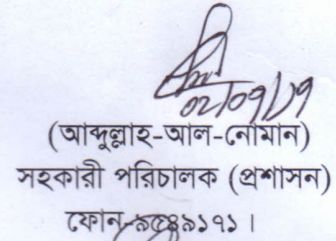 ০২/০৭/১৭
(আব্দুল্লাহ-আল-নোমান)
সহকারী পরিচালক (প্রশাসন)
ফোন-৯৫৪৯১৭১।